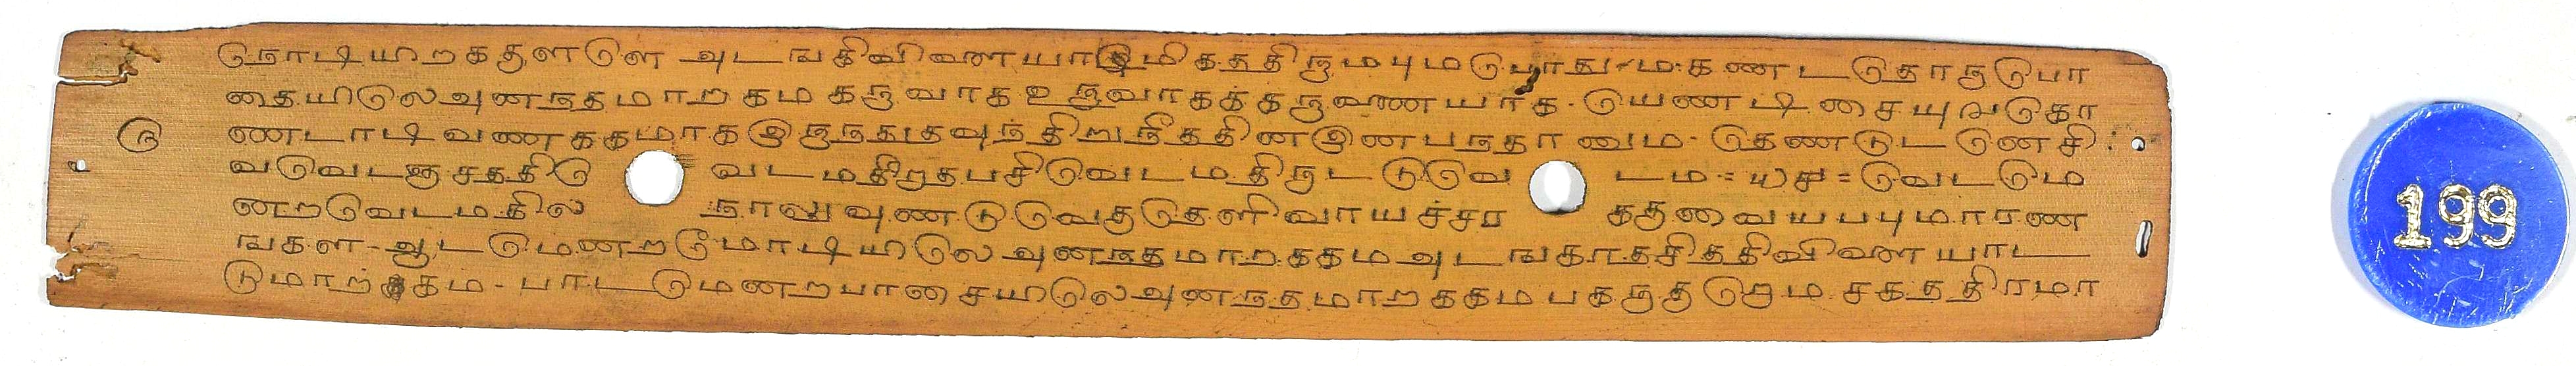 நொடியிறகதுளளெ அடஙகிவிளையாடுமிகததிருமபுமபொது-ம-கணடதொருபொ
தையிலெஅனநதமாறகம கருவாக உருவாகக்கருவணையாக-யெணடிசையுஙகொ
ரு ணடாடிவணககமாகஇருநததவுந்திறுநீததினஇணபநதானும-தெணடெடனெசி
வவெடஞசததிரெ வடமதிறதபசிவெடமதிருடடுவெ டம-வெடமெ
ணறவெடமதில நாலுவுணடுவெததெளிவாயச்சர கதவையபபுமாரண
ஙகள-ஆடமெணறமோடியிலெ அனநதமாறககம அடஙகாதசிததிவிளையாட
டுமாற்ககம-பாடடுமணறபாசையிலெஅனநதமாறககமபகருதறெம சகததிரமா
199